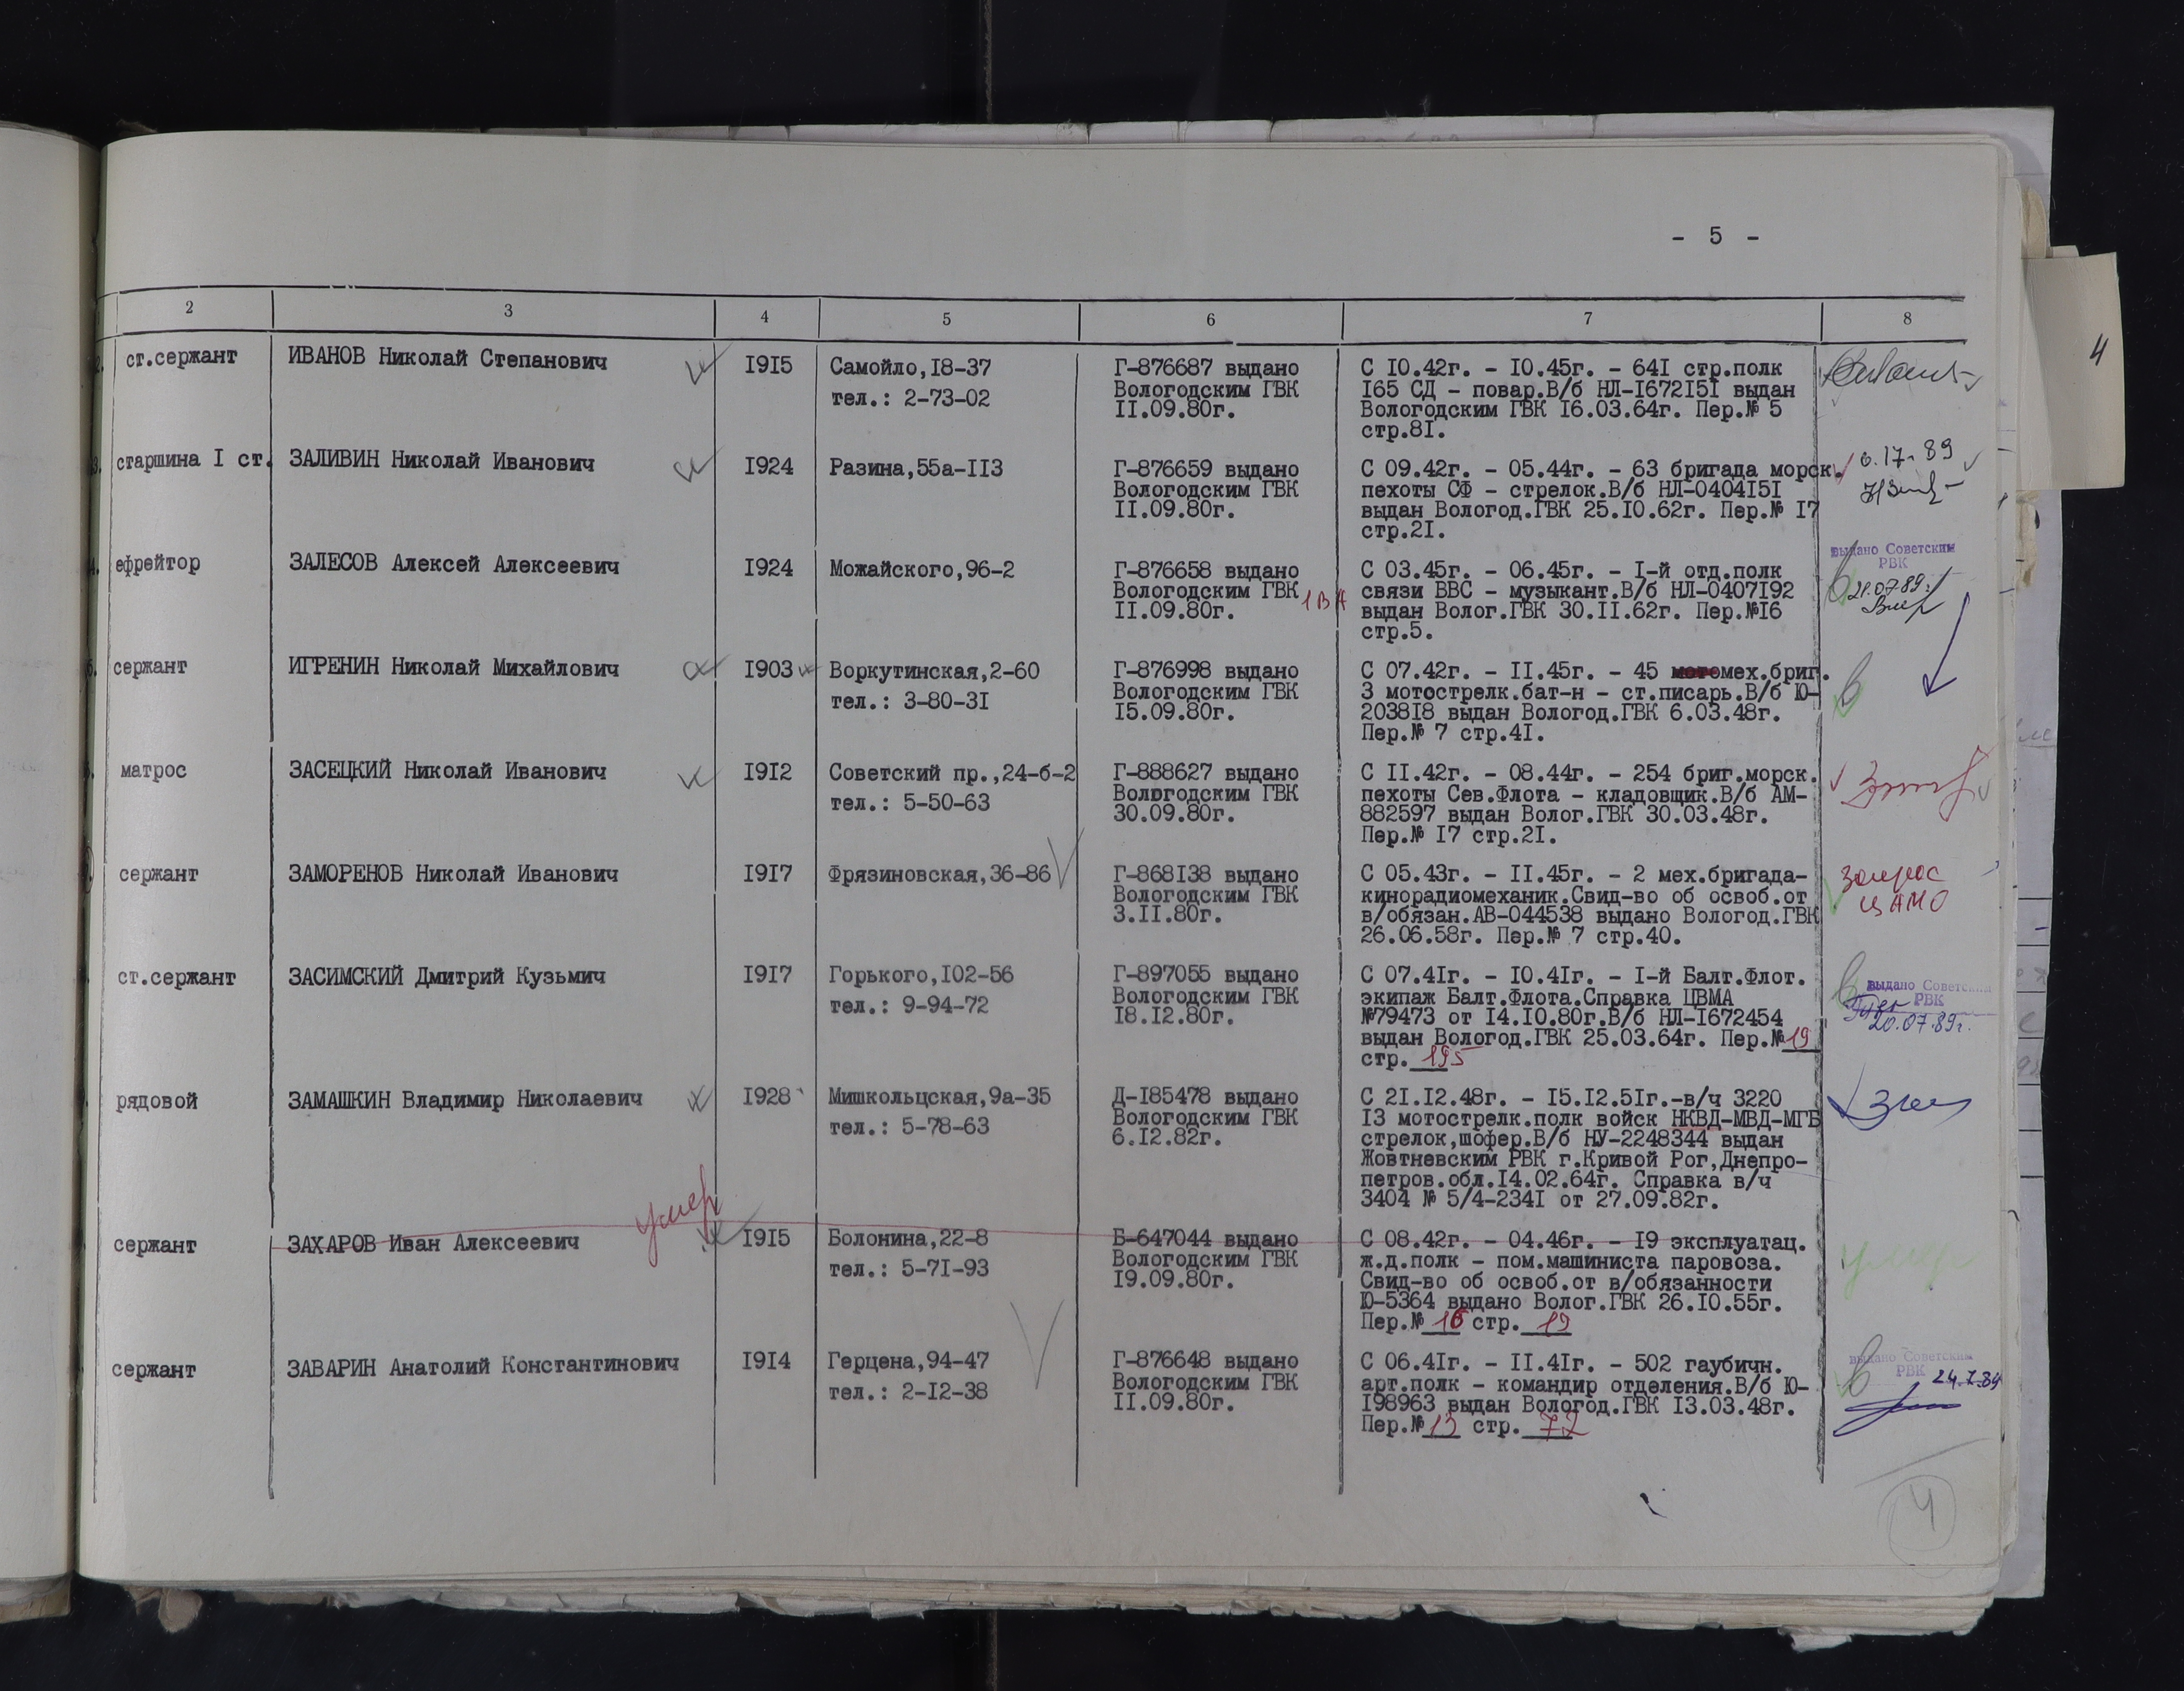 - 5 -
2 3 4 5 6 7 8
ст.сержант ИВАНОВ Николай Степанович I9I5 Самойло,I8-37 Г-876687 выдано С I0.42г. - I0.45г. - 64I стр.полк
тел.: 2-73-02 Вологодским ГВК I65 СД - повар.В/б НЛ-I672I5I выдан
II.09.80г. Вологодским ГВК I6.03.64г. Пер.№ 5
стр.8I.
старшина I ст. ЗАЛИВИН Николай Иванович I924 Разина,55а-II3 Г-876659 выдано С 09.42г. - 05.44г. - 63 бригада морск. 17-89
Вологодским ГВК пехоты СФ - стрелок.В/б НЛ-0404I5I
II.09.80г. выдан Вологод.ГВК 25.I0.62г. Пер.№ I7
стр.2I.
ефрейтор ЗАЛЕСОВ Алексей Алексеевич I924 Можайского,96-2 Г-876658 выдано С 03.45г. - 06.45г. - I-й отд.полк выдано Советским
Вологодским ГВК 1 ВА связи ВВС - музыкант.В/б НЛ-0407I92 РВК
II.09.80г. выдан Волог.ГВК 30.II.62г. Пер.№I6 21.07.89г.
стр.5.
сержант ИГРЕНИН Николай Михайлович I903 Воркутинская,2-60 Г-876998 выдано С 07.42г. - II.45г. - 45 мотомех.бриг.
тел.: 3-80-3I Вологодским ГВК 3 мотострелк.бат-н - ст.писарь.В/б Ю-
I5.09.80г. 2038I8 выдан Вологод.ГВК 6.03.48г.
Пер.№ 7 стр.4I.
матрос ЗАСЕЦКИЙ Николай Иванович I9I2 Советский пр.,24-б-2 Г-888627 выдано С II.42г. - 08.44г. - 254 бриг.морск.
тел.: 5-50-63 Вологодским ГВК пехоты Сев.Флота - кладовщик.В/б АМ-
30.09.80г. 882597 выдан Волог.ГВК 30.03.48г.
Пер.№ I7 стр.2I.
сержант ЗАМОРЕНОВ Николай Иванович I9I7 Фрязиновская,36-86 Г-868I38 выдано С 05.43г. - II.45г. - 2 мех.бригада- запрос
Вологодским ГВК кинорадиомеханик.Свид-во об освоб.от ЦАМО
3.II.80г. в/обязан.АВ-044538 выдано Вологод.ГВК
26.06.58г. Пер.№ 7 стр.40.
ст.сержант ЗАСИМСКИЙ Дмитрий Кузьмич I9I7 Горького,I02-56 Г-897055 выдано С 07.4Iг. - I0.4Iг. - I-й Балт.Флот. выдано Советским
тел.: 9-94-72 Вологодским ГВК экипаж Балт.Флота.Справка ЦВМА РВК
I8.I2.80г. №79473 от I4.I0.80г.В/б НЛ-I672454 20.07.89г.
выдан Вологод.ГВК 25.03.64г. Пер.№ 19
стр. 195
рядовой ЗАМАШКИН Владимир Николаевич I928 Мишкольцская,9а-35 Д-I85478 выдано С 2I.I2.48г. - I5.I2.5Iг.-в/ч 3220
тел.: 5-78-63 Вологодским ГВК I3 мотострелк.полк войск НКВД-МВД-МГБ
6.I2.82г. стрелок,шофер.В/б НУ-2248344 выдан
Жовтневским РВК г.Кривой Рог,Днепро-
петров.обл.I4.02.64г. Справка в/ч
3404 № 5/4-234I от 27.09.82г.
умер
сержант ЗАХАРОВ Иван Алексеевич I9I5 Болонина,22-8 Б-647044 выдано С 08.42г. - 04.46г. - I9 эксплуатац. умер
тел.: 5-7I-93 Вологодским ГВК ж.д.полк - пом.машиниста паровоза.
I9.09.80г. Свид-во об освоб.от в/обязанности
Ю-5364 выдано Волог.ГВК 26.I0.55г.
Пер.№ 16 стр. 19
сержант ЗАВАРИН Анатолий Константинович I9I4 Герцена,94-47 Г-876648 выдано С 06.4Iг. - II.4Iг. - 502 гаубичн. выдано Советским
тел.: 2-I2-38 Вологодским ГВК арт.полк - командир отделения.В/б Ю- РВК 24.7.89
II.09.80г. I98963 выдан Вологод.ГВК I3.03.48г.
Пер.№ 13 стр. 72
4
4